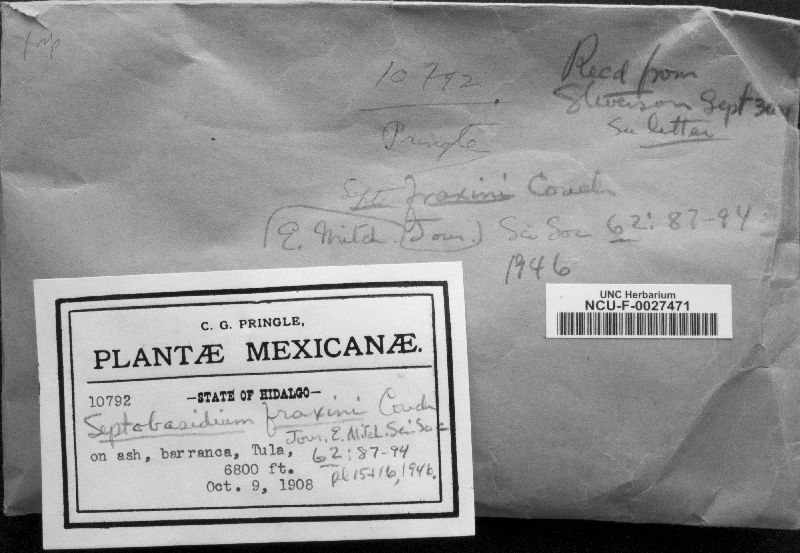 10792
Pringle
Recd from
Steverson Sept 30
See letter
Septo fraxini Couch
(E. Mitch. (Jour.) Sci Soc 62: 87-94
1946
UNC Herbarium
NCU-F-0027471
C. G. PRINGLE,
PLANTÆ MEXICANÆ.
10792 —STATE OF HIDALGO—
Septobasidium fraxini Couch
Jour. E. Mitch. Sci Soc
on ash, barranca, Tula, 62:87-94
6800 ft. pl 15+16, 1946.
Oct. 9, 1908